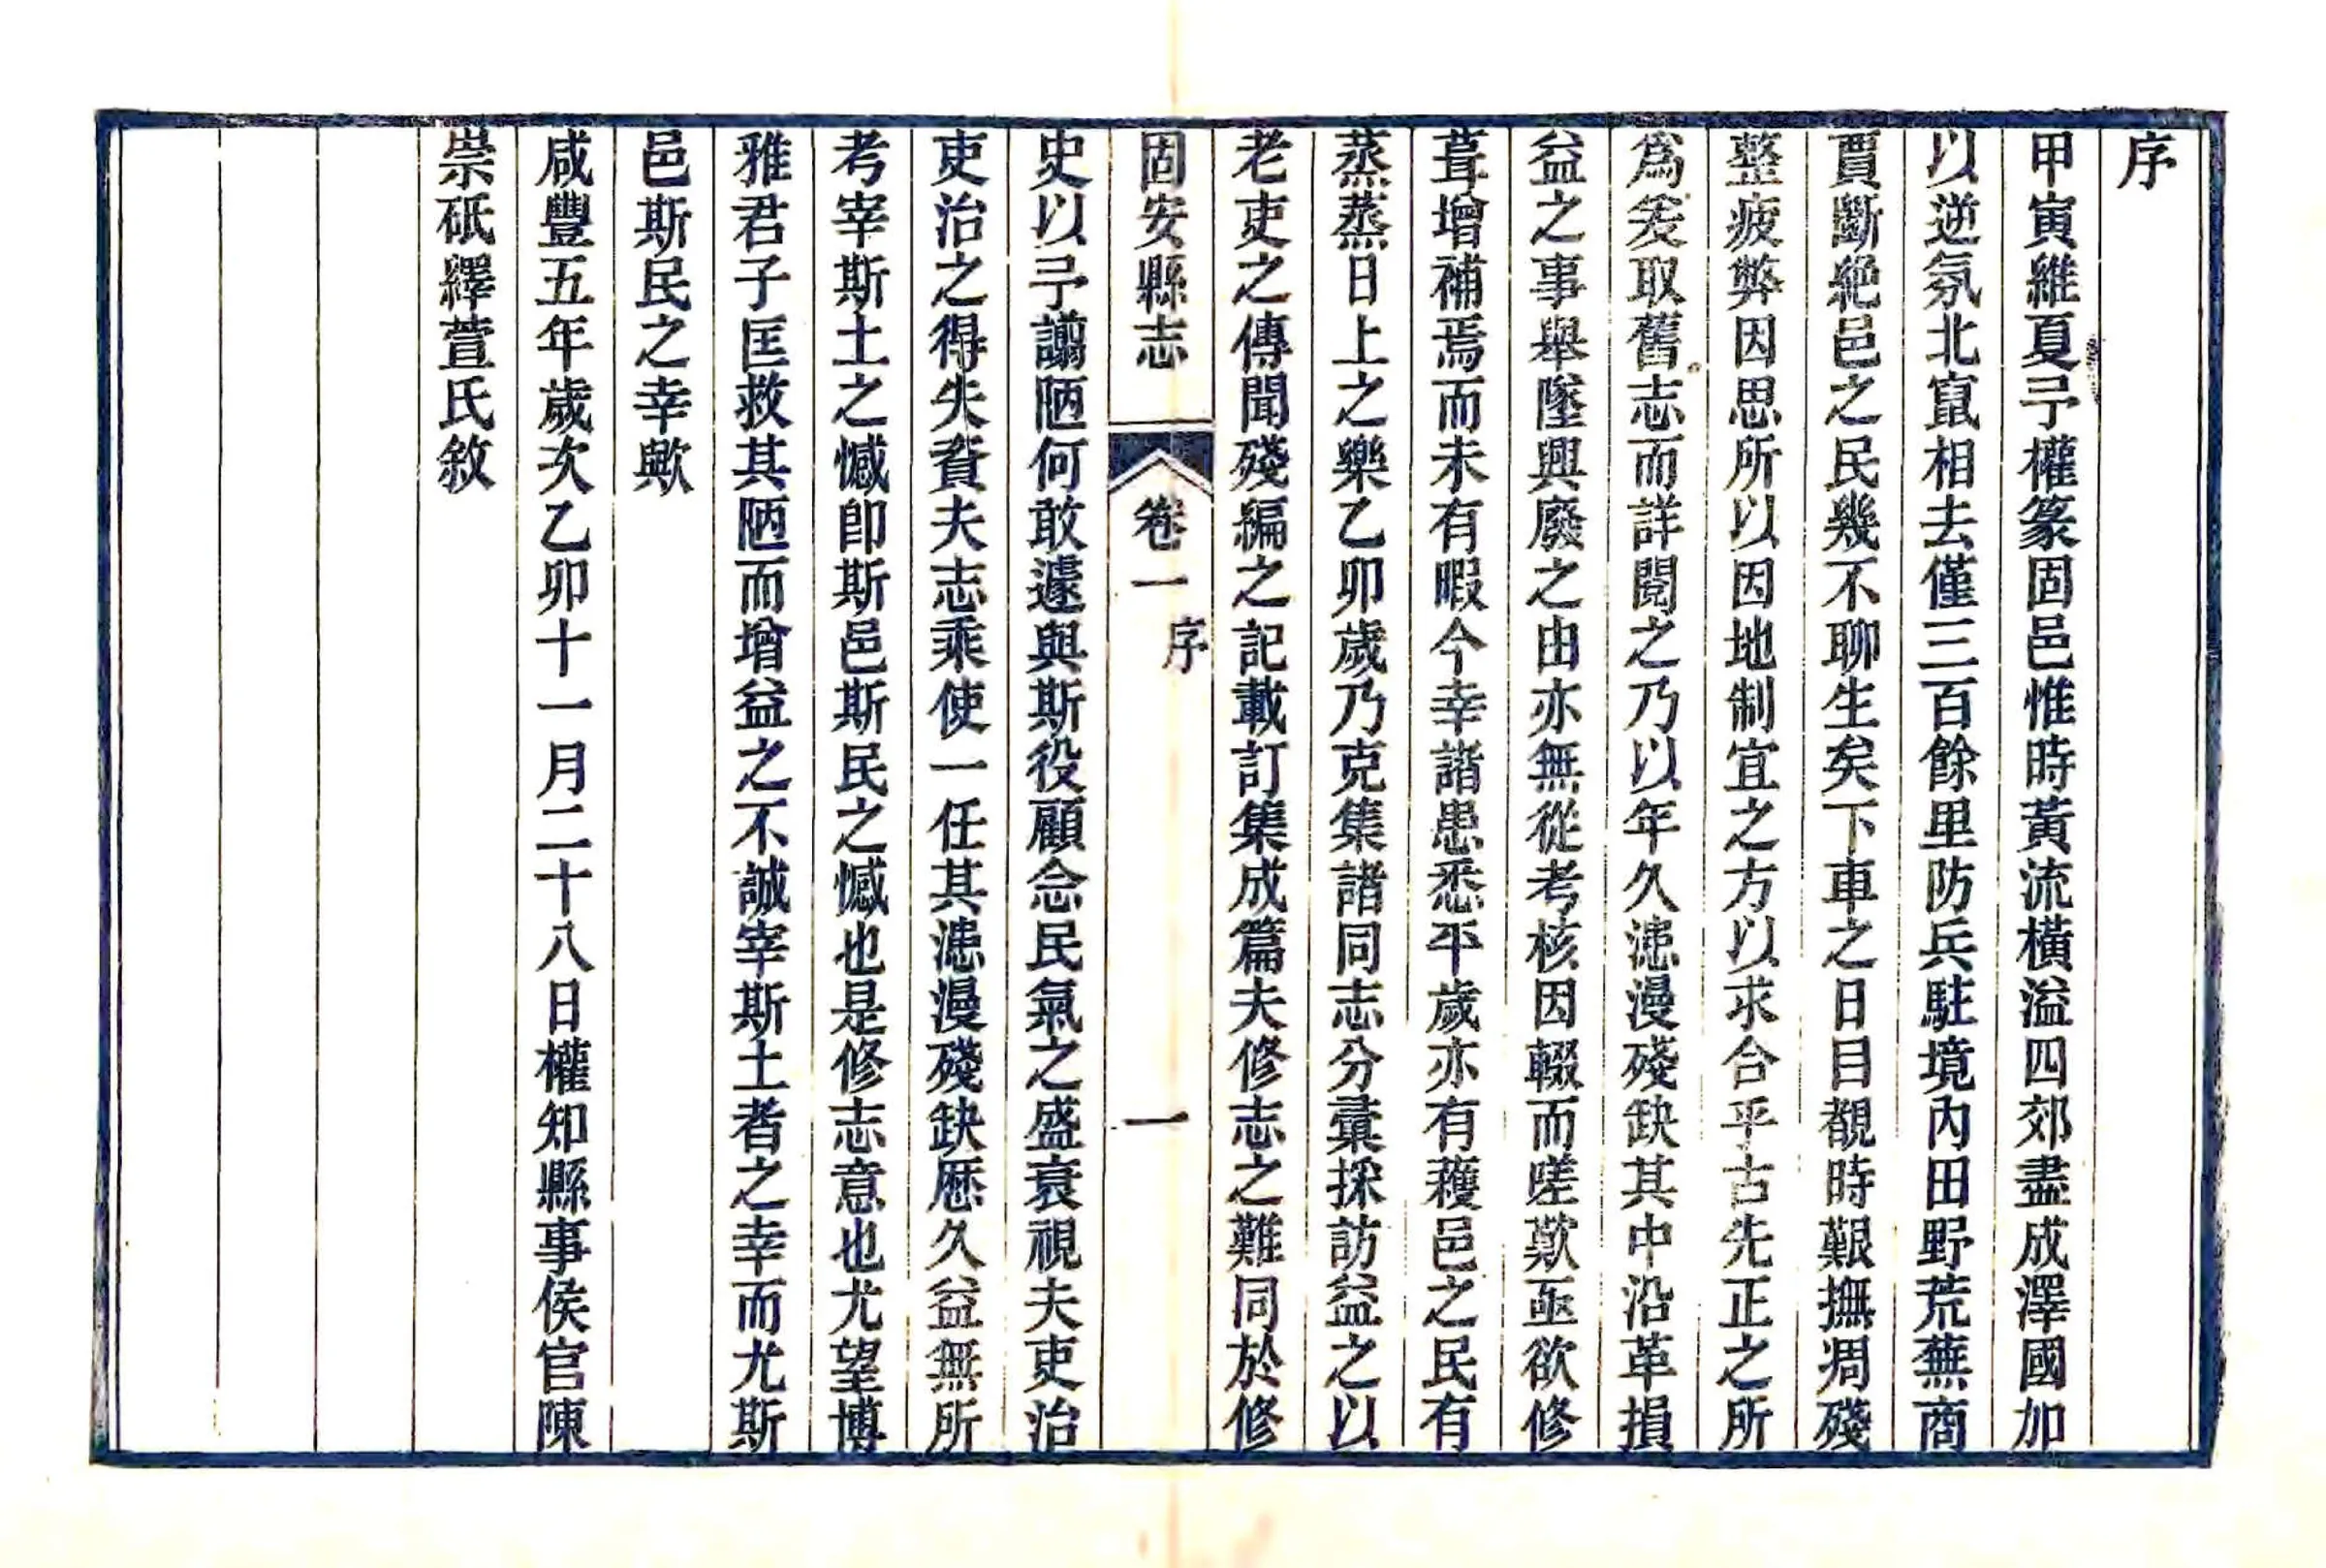 序
甲寅維夏予權篆固邑惟時黃流橫溢四郊盡成澤國加
以逆氛北竄相去僅三百餘里防兵駐境內田野荒蕪商
賈斷絕邑之民幾不聊生矣下車之日目覩時艱撫凋殘
整疲弊因思所以因地制宜之方以求合乎古先正之所
爲爰取舊志而詳閱之乃以年久漶漫殘缺其中沿革損
益之事舉墜興廢之由亦無從考核因輟而嗟歎亟欲修
葺增補焉而未有暇今幸諧患悉平歲亦有穫邑之民有
蒸蒸日上之樂乙卯歲乃克集諸同志分彙採訪益之以
老吏之傳聞殘編之記載訂集成篇夫修志之難同於修
固安縣志
卷一
序
一
史以予謭陋何敢遽與斯役顧念民氣之盛衰視夫吏治
吏治之得失資夫志乘使一任其漶漫殘缺歷久益無所
考宰斯土之憾卽斯邑斯民之憾也是修志意也尤望博
雅君子匡救其陋而增益之不誠宰斯土者之幸而尤斯
邑斯民之幸歟
咸豐五年歲次乙卯十一月二十八日權知縣事侯官陳
崇砥繹萱氏敘